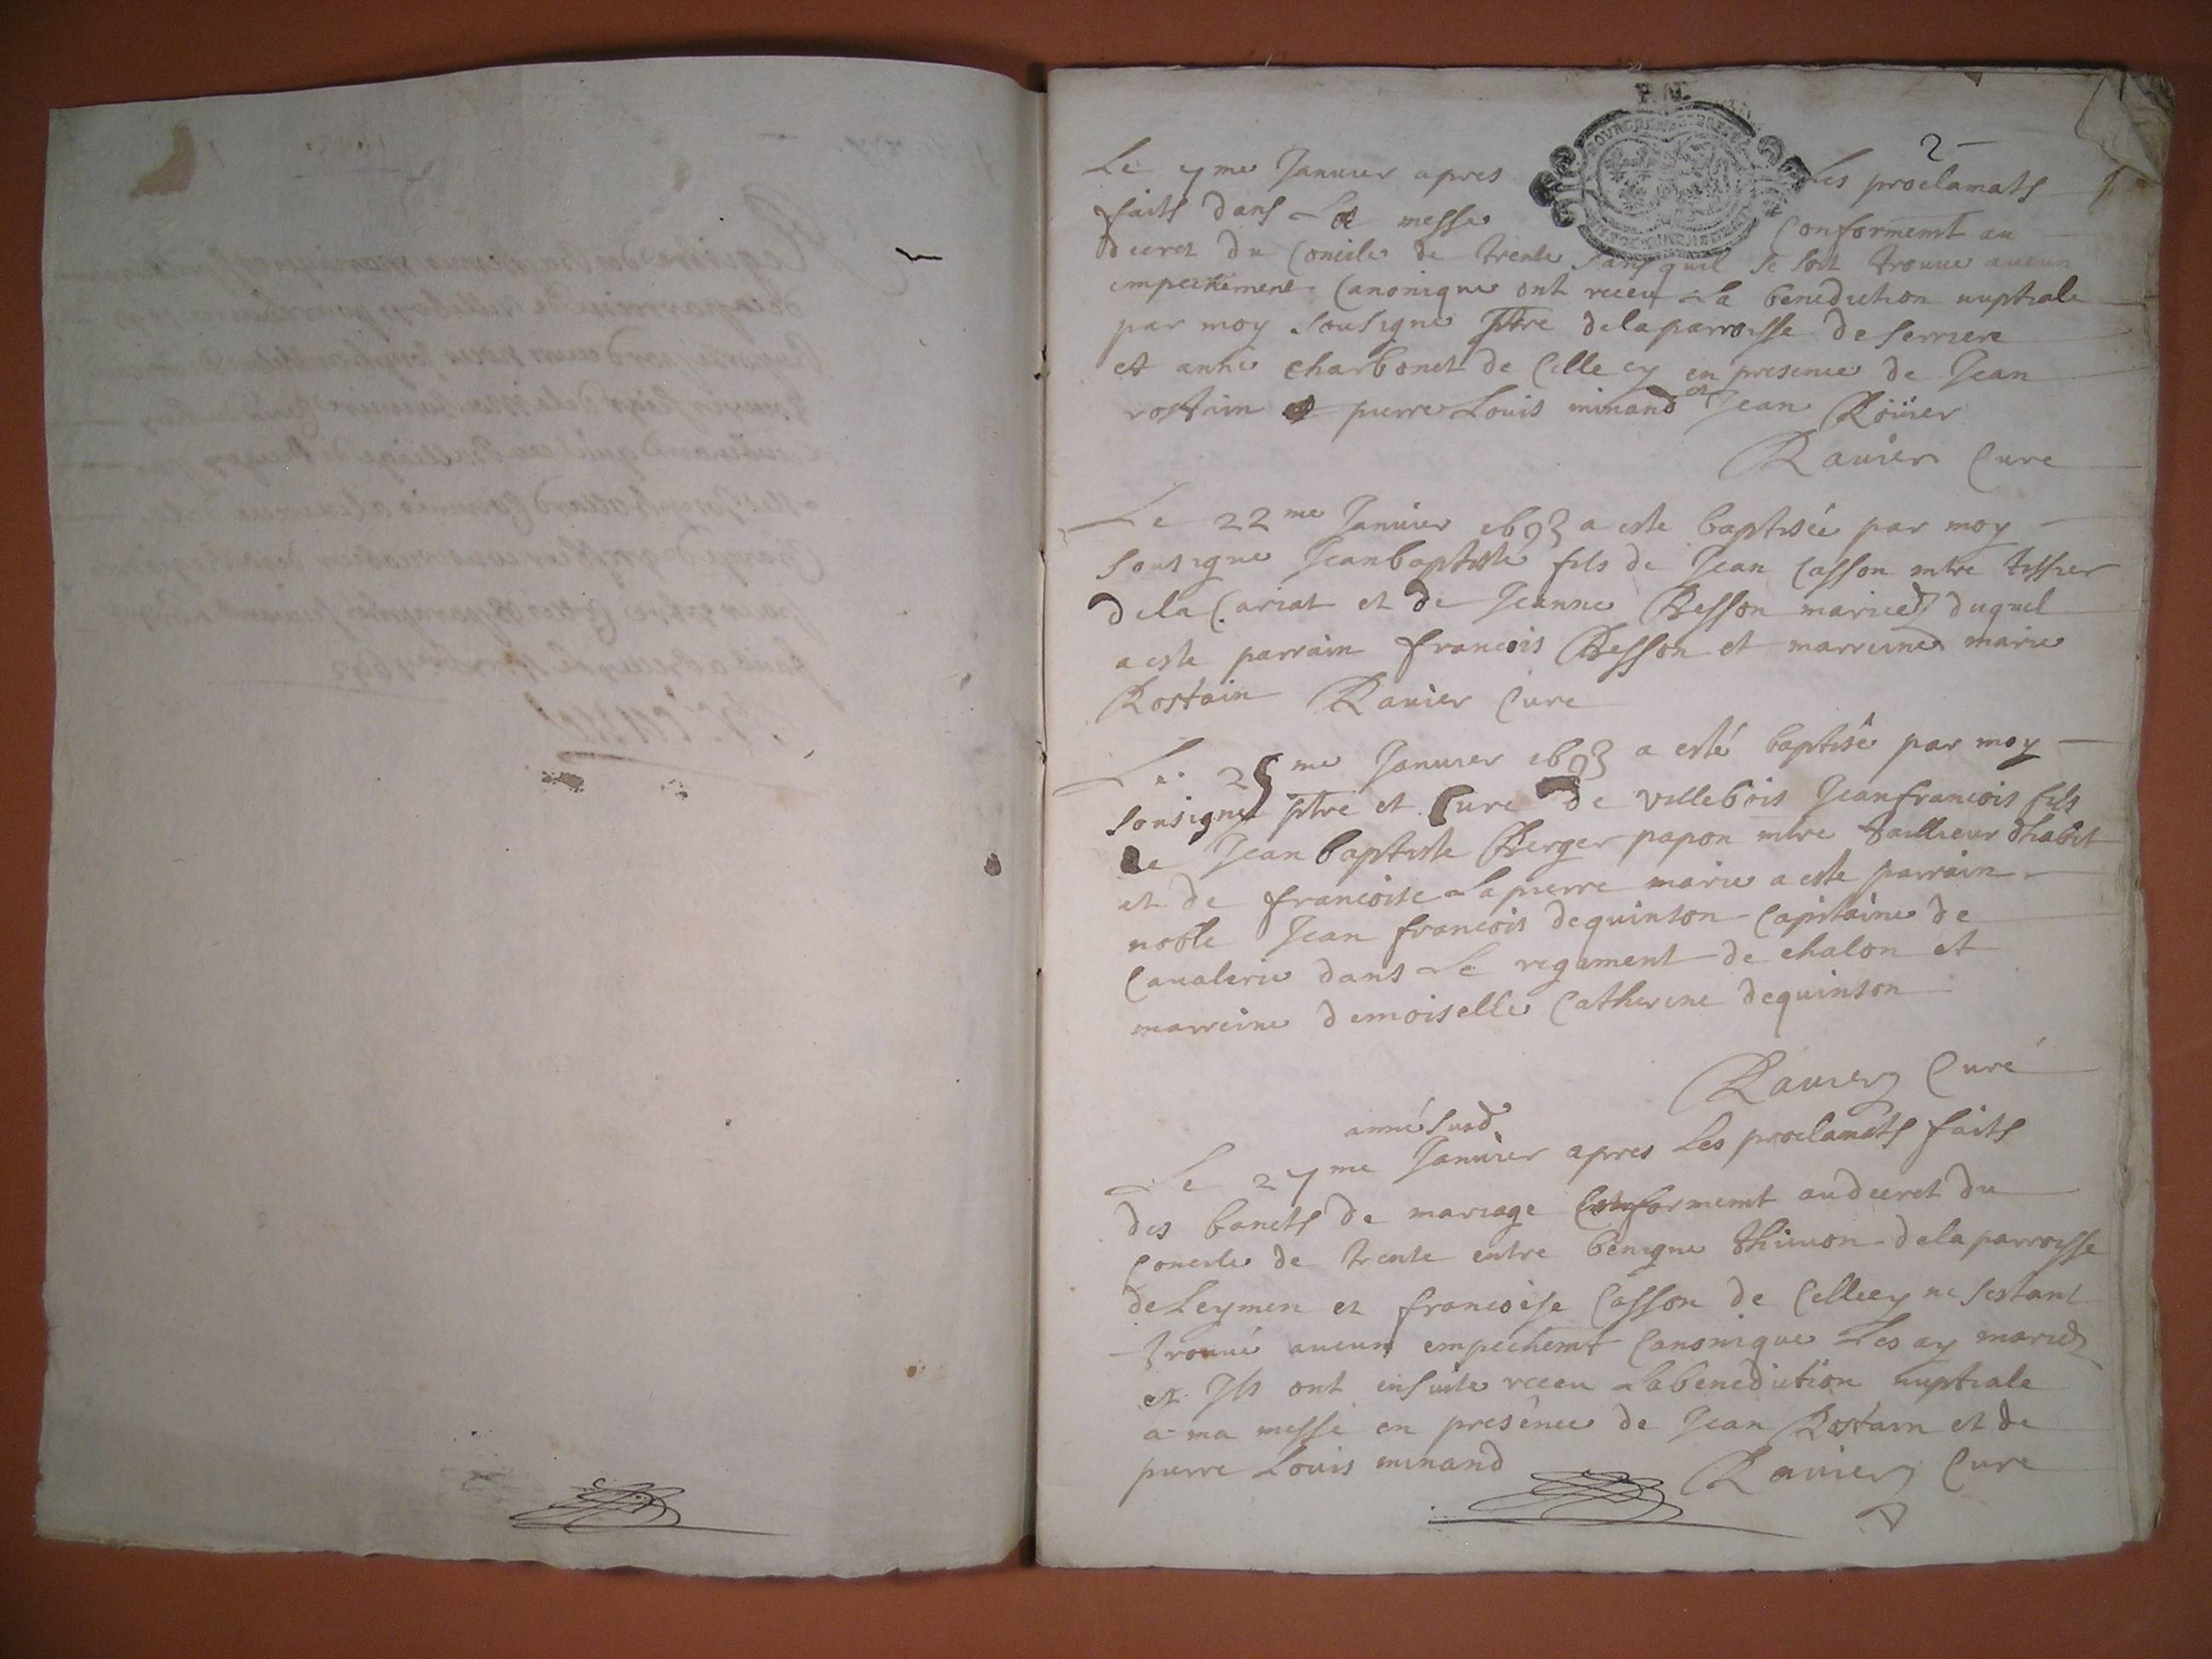 2
Le 7me Januier apres Les proclamats
faits dans La messe Conformemt au
decret du Concile de trente sans quil se soit trouue aucun
empechement Canonique ont receu La benediction nuptiale
par moy sousigne ptre dela parroisse de serriere
et anne charbonet de Cille cy en presence de Jean
rostain et pierre Louis minand et Jean Roüier
Rauier Cure
Le 22me Januier 1693 a este baptisée par moy
sousigne Jeanbaptiste fils de Jean Casson mtre tissier
dela Cariat et de Jeanne Besson maried duquel
a este parrain francois Besson et marreine marie
Rostain Rauier Cure
Le 25me Januier 1693 a esté baptisé par moy
sousigne ptre et Cure de villebois Jeanfrancois fils
de Jean baptiste Berger papon mtre taillieur dhabit
et de francoise Lapierre marie a este parrain
noble Jean francois dequinson Capitaine de
Caualerie dans Le regiment de chalon et
marreine demoiselle Catherine dequinson
Rauier Curé
anné susd
Le 27me Januier apres Les proclamats faits
des bancts de mariage Conformemt au decret du
Concile de trente entre benigne thiuon dela parroisse
de Leymen et francoise Casson de Cilley ne sestant
trouué aucun empechemt Canonique Les ay maried
et Ils ont ensuite receu La benediction nuptiale
a ma messe en presence de Jean Rostain et de
pierre Louis minand Rauier Cure